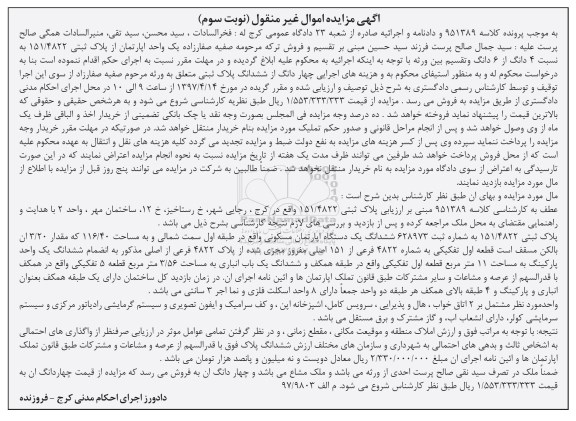 آگهی مزایده اموال غیر منقول (نوبت سوم)
به موجب پرونده کلاسه ۹۵۱۳۸۹ و دادنامه و اجرائیه صادره از شعبه ۲۳ دادگاه عمومی کرج له : فخرالسادات ، سید محسن، سید تقی، منیرالسادات همگی صالح
پرست علیه : سید جمال صالح پرست فرزند سید حسین مبنی بر تقسیم و فروش ترکه مرحومه صفیه صفارزاده یک واحد اپارتمان از پلاک ثبتی ۱۵۱/۴۸۲۲ به
نسبت ۴ دانگ از ۶ دانگ وتقسیم بین ورثه با توجه به اینکه اجرائیه به محکوم علیه ابلاغ گردیده و در مهلت مقرر نسبت به اجرای حکم اقدام ننموده است بنا به
درخواست محکوم له و به منظور استیفای محکوم به و هزینه های اجرایی چهار دانگ از ششدانگ پلاک ثبتی متعلق به ورثه مرحوم صفیه صفارزاد از سوی این اجرا
توقیف و توسط کارشناس رسمی دادگستری به شرح ذیل توصیف و ارزیابی شده و مقرر گردیده در مورخ ۱۳۹۷/۴/۱۴ از ساعت ۹ الی ۱۰ در محل اجرای احکام مدنی
دادگستری از طریق مزایده به فروش می رسد . مزایده از قیمت ۱/۵۵۳/۳۳۳/۳۳۳ ریال طبق نظریه کارشناسی شروع می شود و به هرشخص حقیقی و حقوقی که
بالاترین قیمت را پیشنهاد نماید فروخته خواهد شد . ده درصد وجه مزایده فی المجلس بصورت وجه نقد یا چک بانکی تضمینی از خریدار اخذ و الباقی ظرف یک
ماه از وی وصول خواهد شد و پس از انجام مراحل قانونی و صدور حکم تملیک مورد مزایده بنام خریدار منتقل خواهد شد، در صورتیکه در مهلت مقرر خریدار وجه
مزایده را پرداخت ننماید سپرده وی پس از کسر هزینه های مزایده به نفع دولت ضبط و مزایده تجدید می گردد کلیه هزینه های نقل و انتقال به عهده محکوم علیه
است که از محل فروش پرداخت خواهد شد طرفین می توانند ظرف مدت یک هفته از تاریخ مزایده نسبت به نحوه انجام مزایده اعتراض نمایند که در این صورت
تارسیدگی به اعتراض از سوی دادگاه مورد مزایده به نام خریدار منتقل نخواهد شد . ضمناً طالبین به شرکت در مزایده می توانند پنج روز قبل از مزایده با اطلاع از
مال مورد مزایده بازدید نمایند.
مال مورد مزایده و بهای ان طبق نظر کارشناس بدین شرح است :
عطف به کارشناسی کلاسه ۹۵۱۳۸۹ مبنی بر ارزیابی پلاک ثبتی ۱۵۱/۴۸۲۲ واقع در کرج ، رجایی شهر، خ رستاخیز، خ ۱۲، ساختمان مهر ، واحد ۲ با هدایت و
راهنمایی متقضای به محل ملک مراجعه کرده و پس از بازدید و بررسی های لازم نتیجه کارشناسی بشرح ذیل می باشد .
پلاک ثبتی ۱۵۱/۴۸۲۲ به شماره ثبت ۶۲۸۹۷۳ ششدانگ یک دستگاه اپارتمان مسکونی واقع در طبقه اول سمت شمالی و به مساحت ۱۱۶/۴۰ که مقدار ۳/۲۰ ان
بالکن مسقف است قطعه اول تفکیکی به شماره ۴۸۲۲ فرعی از ۱۵۱ اصلی مفروز مجزی شده از پلاک ۴۸۲۲ فرعی از اصلی مذکور به انضمام ششدانگ یک واحد
پارکینگ به مساحت ۱۱ متر مربع قطعه اول تفکیکی واقع در طبقه همکف و ششدانگ یک باب انباری به مساحت ۳/۵۶ متر مربع قطعه ۵ تفکیکی واقع در همکف
با قدرالسهم از عرصه و مشاعات و سایر مشترکات طبق قانون تملک اپارتمان ها و ائین نامه اجرای ان. در زمان بازدید کل ساختمان دارای یک طبقه همکف بعنوان
انباری و پارکینگ و ۴ طبقه بالای همکف هر طبقه دو واحد جمعاً دارای ۸ واحد اسکلت فلزی و نما اجر ۳ سانتی می باشد .
واحدمورد نظر مشتمل بر ۲ اتاق خواب ، هال و پذیرایی ، سرویس کامل، اشپزخانه اپن ، و کف سرامیک و ایفون تصویری و سیستم گرمایشی رادیاتور مرکزی و سیستم
سرمایشی کولر، دارای انشعاب اب، و گاز مشترک و برق مستقل می باشد .
نتیجه: با توجه به مراتب فوق و ارزش املاک منطقه و موقعیت مکانی ، مقطع زمانی ، و در نظر گرفتن تمامی عوامل موثر در ارزیابی صرفنظر از واگذاری های احتمالی
به اشخاص ثالث و بدهی های احتمالی به شهرداری و سازمان های مختلف ارزش ششدانگ پلاک فوق با قدرالسهم از عرصه و مشاعات و مشترکات طبق قانون تملک
اپارتمان ها و ائین نامه اجرای ان مبلغ ۲/۳۳۰/۰۰۰/۰۰۰ ریال معادل دویست و نه میلیون و پانصد هزار تومان می باشد .
ضمناً ملک در تصرف سید نقی صالح پرست احدی از ورثه می باشد و ملک مشاع می باشد و چهار دانگ ان به فروش می رسد که مزایده از قیمت چهاردانگ ان به
قیمت ۱/۵۵۳/۳۳۳/۳۳۳ ریال طبق نظر کارشناس شروع می شود. م الف ۹۷/۹۸۰۳
دادورز اجرای احکام مدنی کرج - فروزنده